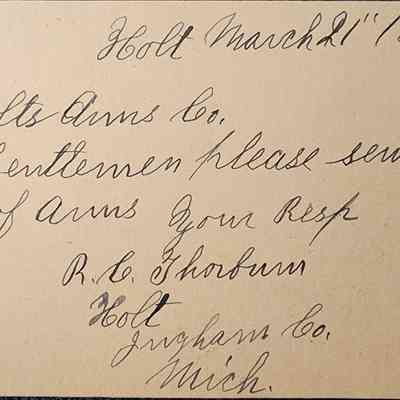 Holt March 21" 1
lts Arms Co.
Gentlemen please sen
of Arms Your Resp
R. C. Thorburn
Holt
Ingham Co.
Mich.